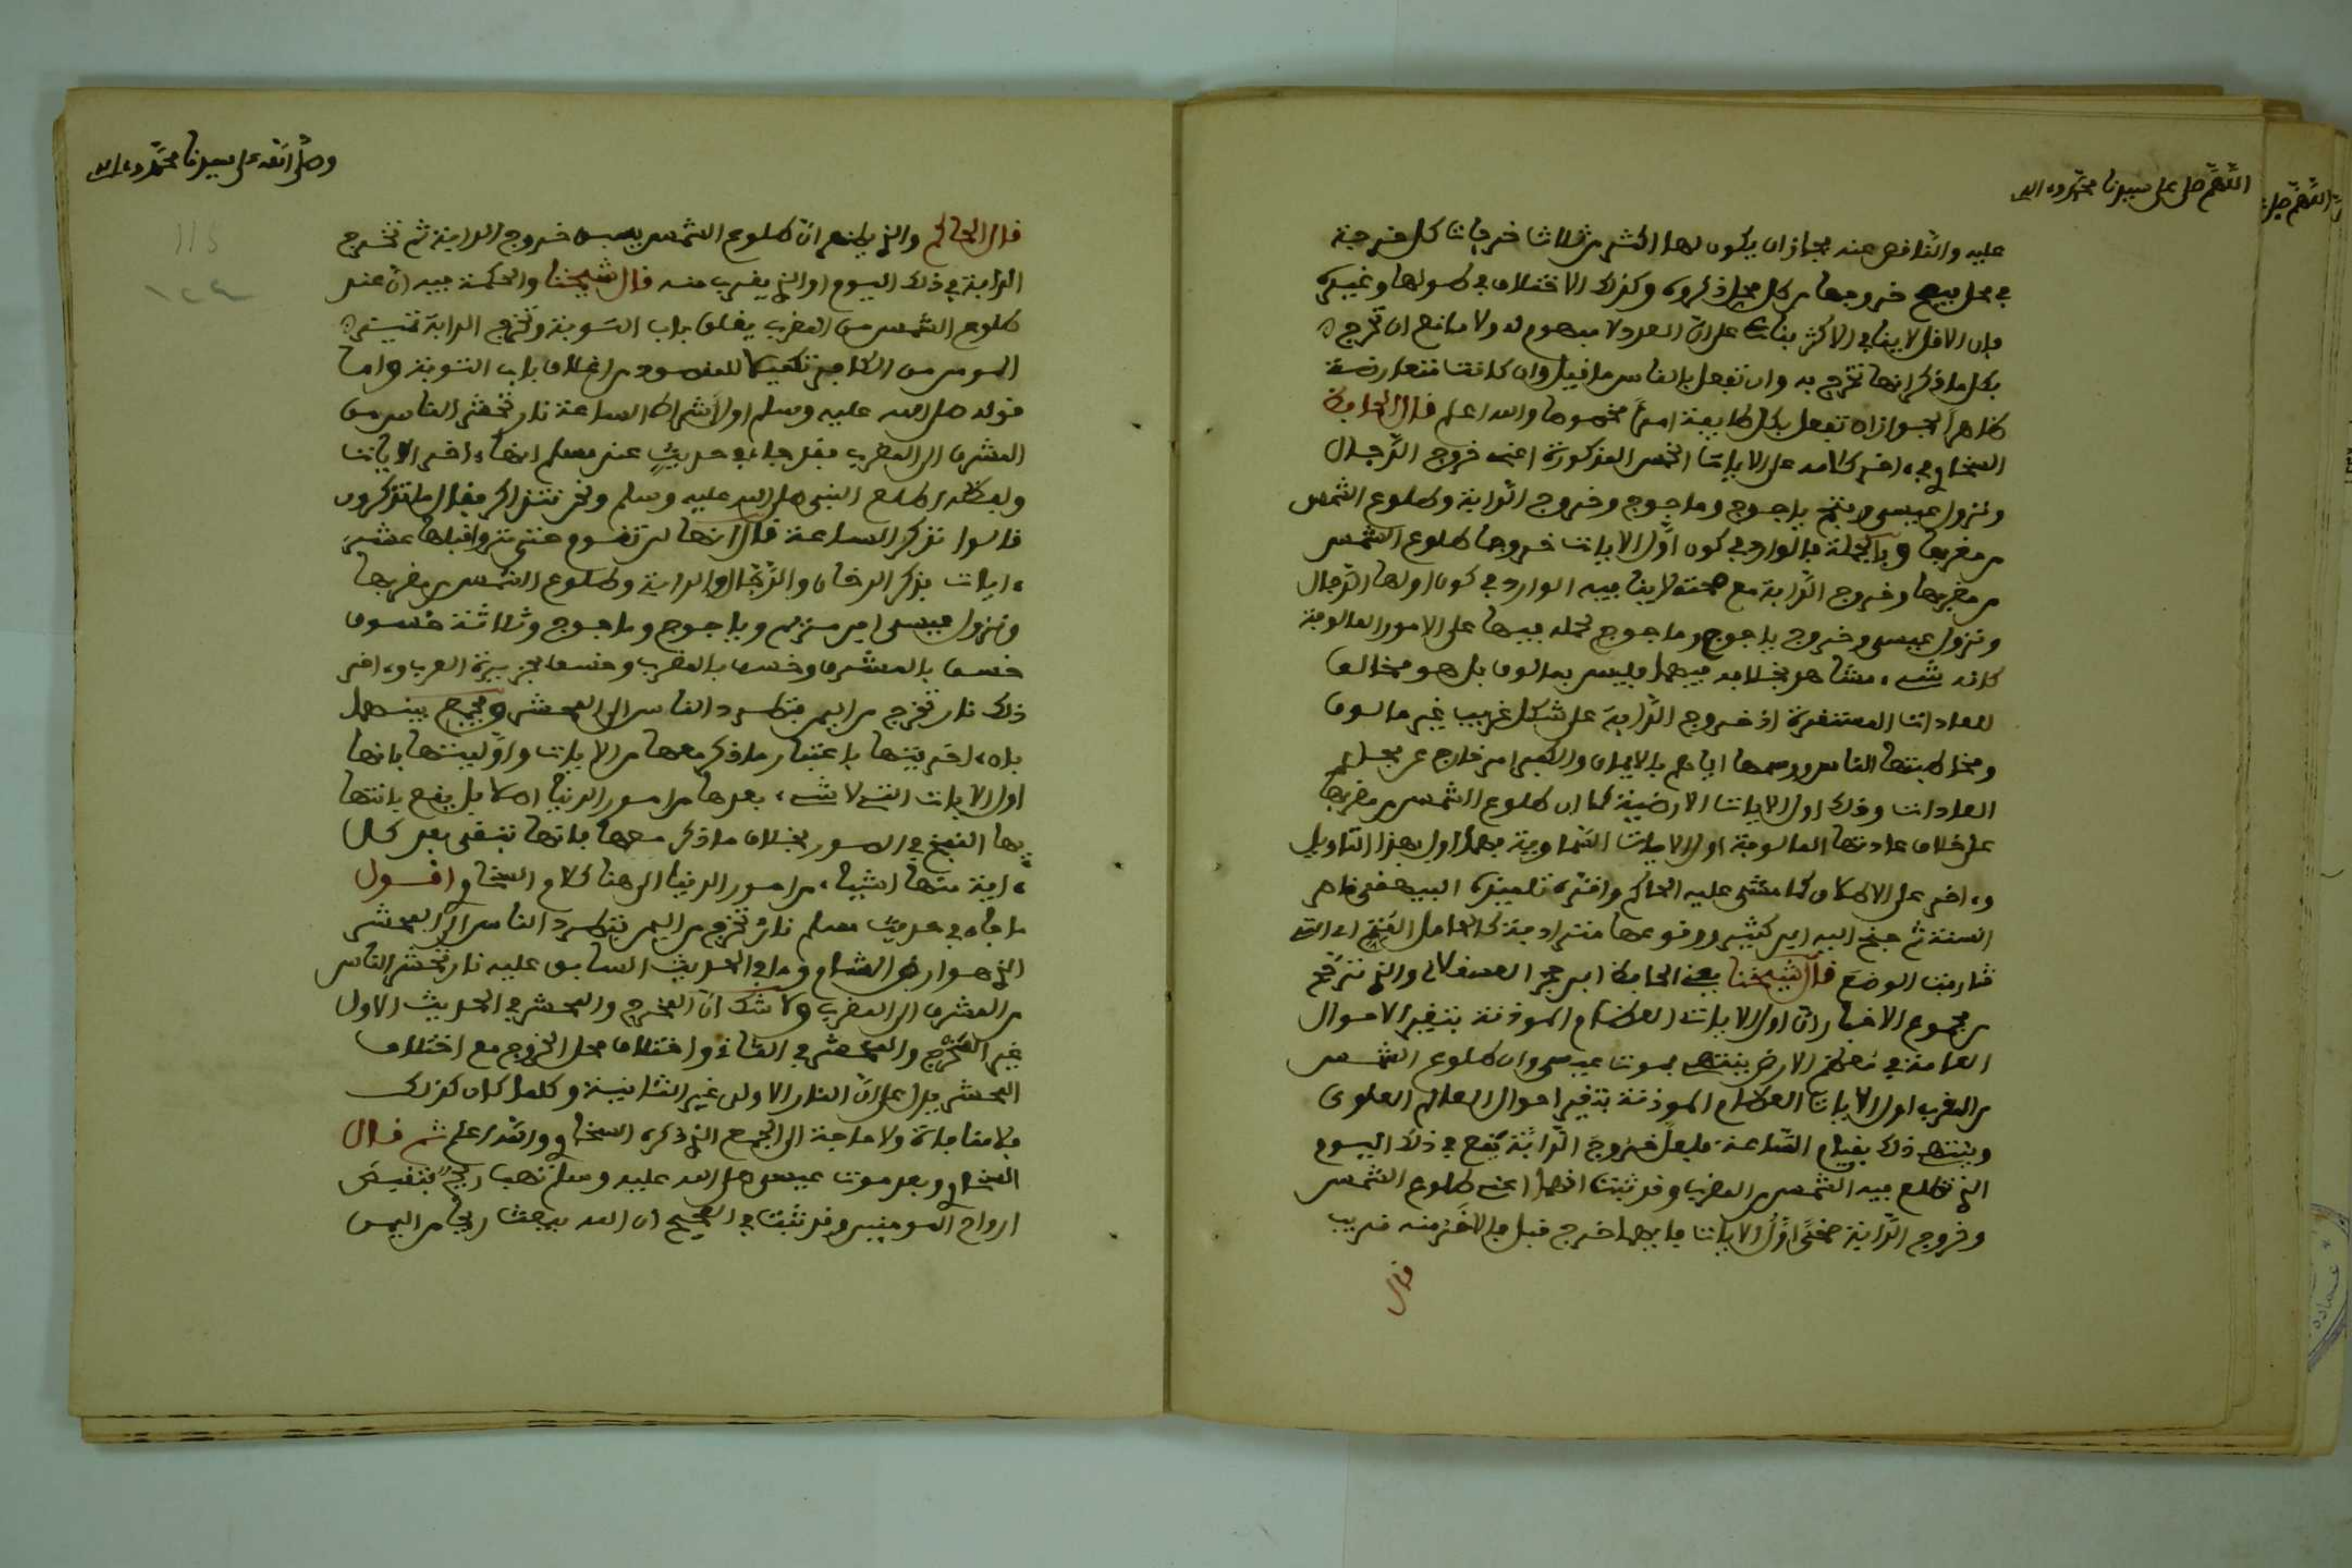 اللهم صل على سيدنا محمد وءاله
عليه والناقص عنه بجاز ان يكون لها اكثر من ثلاث خرجات كل خرجة
في محل يصح خروجها من كل محل ذكروه وكذلك الاختلاف في طولها وغيره
فان الاقل لا ينافي الاكثر بناء على ان العدد لا مفهوم له ولا مانع ان تخرج
بكل ما ذكر انها تخرج به وان تفعل بالناس ما قيل وان كانت متعارضة
ظاهرا لجواز ان تفعل بكل طايفة امرا مخصوصا والله اعلم قال الحافظ
السخاوي ءاخر كلامه على الايات الخمس المذكورة اعني خروج الدجال
ونزول عيسى وفتح ياجوج وماجوج وخروج الدابة وطلوع الشمس
من مغربها وبالجملة فالوارد في كون اول الايات خروجا طلوع الشمس
من مغربها وخروج الدابة مع صحته لا ينافيه الوارد في كون اولها الدجال
ونزول عيسى وخروج ياجوج وماجوج لحمله فيها على الامور المالوفة
كانه شيء مشاهد بخلافه فيهما فليس بمالوف بل هو مخالف
للعادات المستقرة اذ خروج الدابة على شكل غريب غير مالوف
ومخاطبتها الناس ووسمها اياهم بالايمان والكفر امر خارج عن مجمل
العادات وذلك اول الايات الارضية كما ان طلوع الشمس من مغربها
على خلاف عادتها المالوفة اول الايات السماوية فهما اول بهذا التاويل
وءاخر على الاطلاق كما مشى عليه الحاكم واقره تلميذه البيهقي ناصر
السنة ثم جنح اليه ابن كثير ووقوعها مترادفة كالحامل المتم اي التي
قاربت الوضع قال شيخنا يعني الحافظ ابن حجر العسقلاني والذي يترجح
من مجموع الاخبار ان اول الايات العظام الموذنة بتغير الاحوال
العامة في معظم الارض ينتهي بموت عيسى وان طلوع الشمس
من المغرب اول الايات العظام الموذنة بتغير احوال العالم العلوي
وينتهي ذلك بقيام الساعة فلعل خروج الدابة يقع في ذلك اليوم
الذي تطلع فيه الشمس من المغرب وقد ثبت انهما اعني طلوع الشمس
وخروج الدابة ضحى اول الايات فايهما خرج قبل فالاخر منه قريب
قال
وصلى الله على سيدنا محمد وعلى اله
قال الحاكم والذي يظهر ان طلوع الشمس يسبق خروج الدابة ثم تخرج
الدابة في ذلك اليوم او الذي يقرب منه قال شيخنا والحكمة فيه ان عند
طلوع الشمس من المغرب يغلق باب التوبة وتخرج الدابة تميز
المومن من الكافر تكميلا للمقصود من اغلاق باب التوبة واما
قوله صلى الله عليه وسلم اول اشراط الساعة نار تحشر الناس من
المشرق الى المغرب فقد جاء في حديث عند مسلم انها ءاخر الايات
ولفظه اطلع النبي صلى الله عليه وسلم ونحن نتذاكر فقال ما تذكرون
قالوا نذكر الساعة قال انها لن تقوم حتى تروا قبلها عشر
ءايات فذكر الدخان والدجال والدابة وطلوع الشمس من مغربها
ونزول عيسى ابن مريم وياجوج وماجوج وثلاثة خسوف
خسف بالمشرق وخسف بالمغرب وخسف بجزيرة العرب وءاخر
ذلك نار تخرج من اليمن فتطرد الناس الى المحشر ويجمع بينهما
بان ءاخريتها باعتبار ما ذكر معها من الايات واوليتها بانها
اول الايات التي لا شيء بعدها من امور الدنيا اصلا بل يقع بانتها
يها النفخ في الصور بخلاف ما ذكر معها فانها تبقى بعد كل
ءاية منها اشياء من امور الدنيا الى هنا كلام السخاوي اقول
ما جاء في حديث مسلم نار تخرج من اليمن تطرد الناس الى المحشر
الذي هو ارض الشام وما في الحديث السابق عليه نار تحشر الناس
من المشرق الى المغرب ولا شك ان المخرج والمحشر في الحديث الاول
غير المخرج والمحشر في الثاني واختلاف محل الخروج مع اختلاف
المحشر يدل على ان النار الاولى غير الثانية وكلما كان كذلك
فلا منافاة ولا حاجة الى الجمع الذي ذكره السخاوي والله اعلم ثم قال
السخاوي وبعد موت عيسى صلى الله عليه وسلم تهب ريح فتقبض
ارواح المومنين وقد ثبت في الصحيح ان الله يبعث ريحا من اليمن